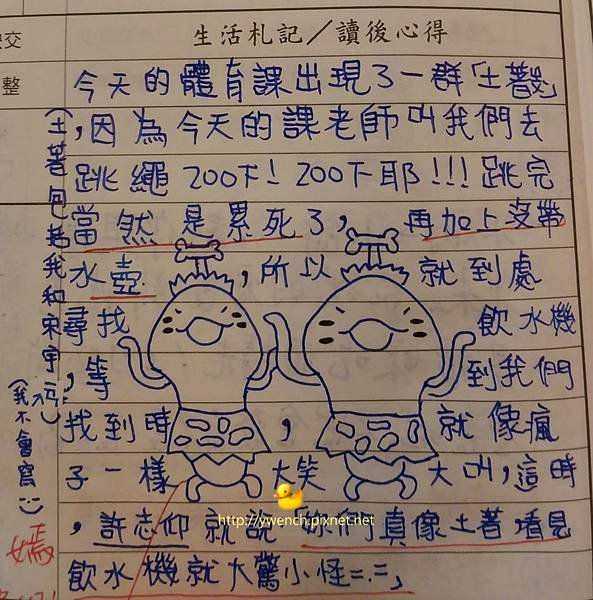 交
整
生活札記／讀後心得
今天的體育課出現了一群「土著」
，因為今天的課老師叫我們去
跳繩200下！200下耶!!!跳完
當然是累死了，再加上沒帶
水壺，所以就到處
尋找飲水機
，等到我們
找到時，就像瘋
子一樣大笑大叫，這時
，許志仰就說「妳們真像土著，看見
飲水機就大驚小怪=.=」
(土著包括我和宋宇ㄒㄧ
(我不會寫:)
http://ywench.pixnet.net